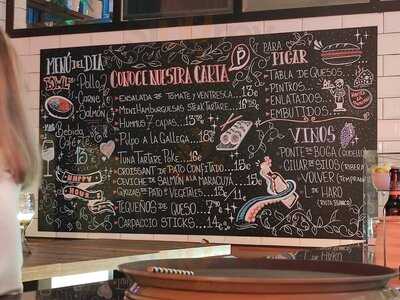 MENÚ DEL DIA
BOWL
Pollo
Carne
Salmón
Bebida
Café
15€
HAPPY
HOUR
CONOCE NUESTRA CARTA
P
ENSALADA DE TOMATE Y VENTRESCA...13€
MINI HAMBURGUESAS STEAK TARTARE...
HUMMUS 7 CAPAS...13€
PULPO A LA GALLEGA
TUNA TARTARE POKE...16€
CROISSANT DE PATO CONFITADO
CEVICHE DE SALMÓN A LA MARACUYÁ
GYOZAS DE PATO Y VEGETALES...13€
TEQUEÑOS DE QUESO...7€
CARPACCIO STICKS...14€
PARA
PICAR
TABLA DE QUESOS
PINTXOS
ENLATADOS
EMBUTIDOS
VINOS
PONTE DA BOGA
CILLAR DE SILOS (RIBERA
VOLVER
DE HARO